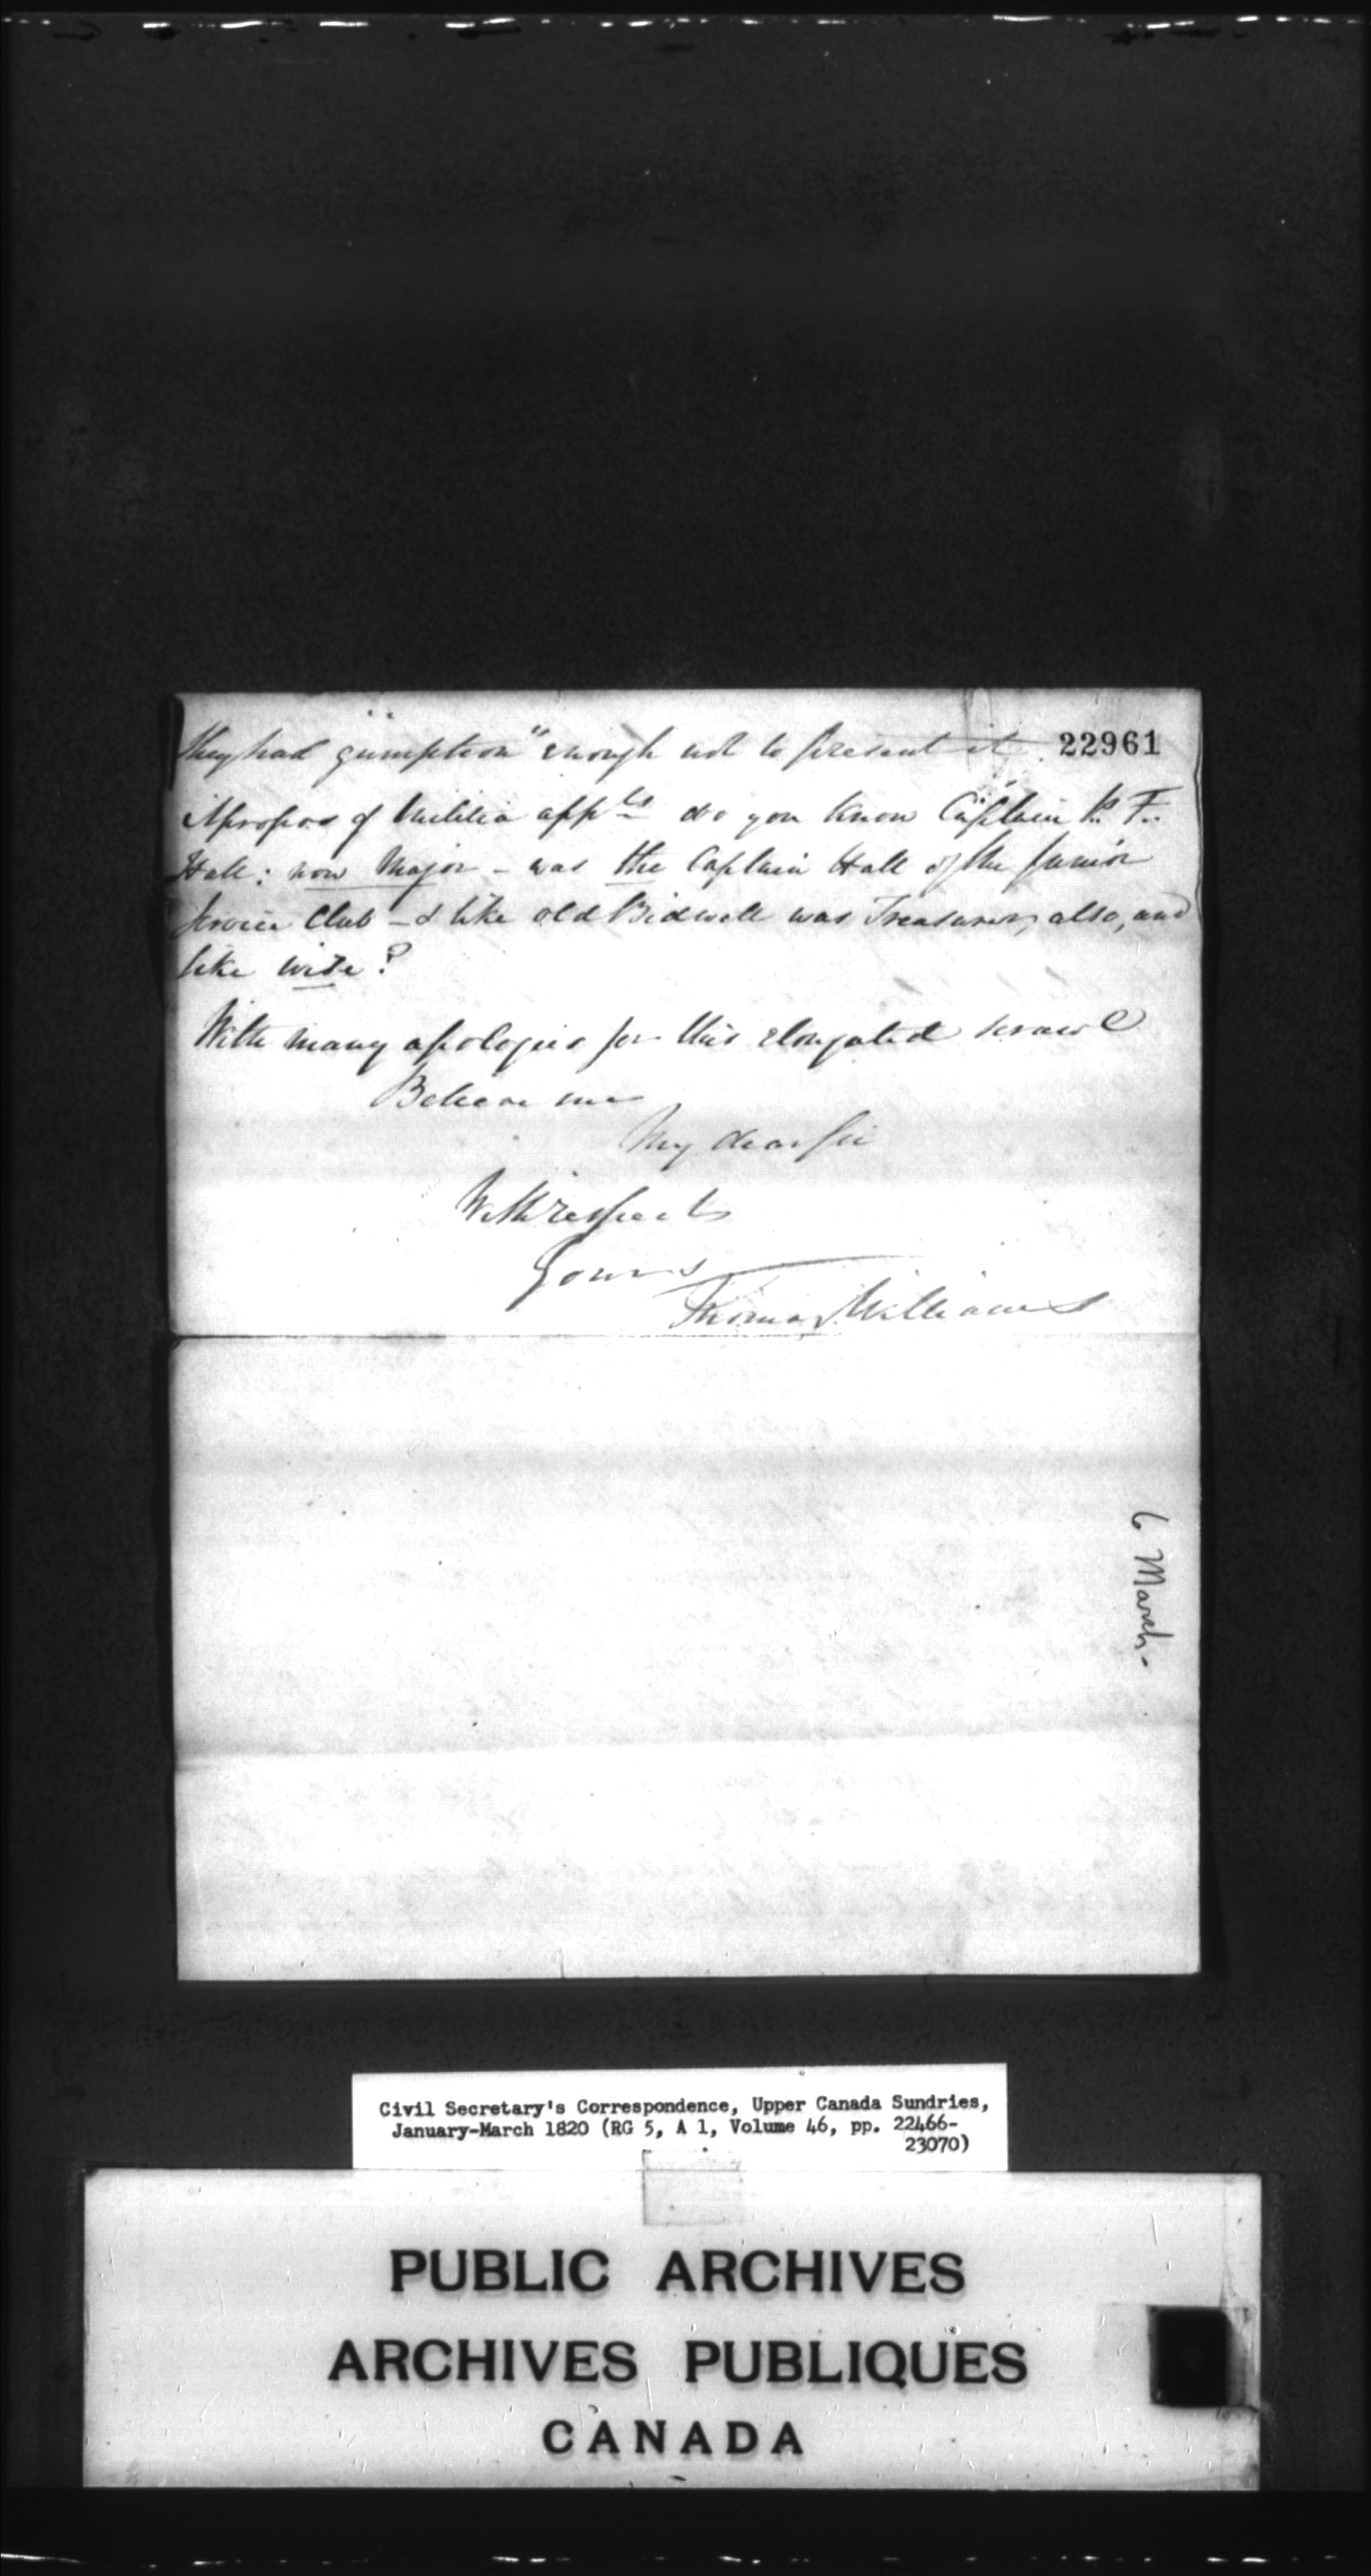 they had "gumption" enough not to present it 22961
Apropos of Militia appts do you know "Captain" P. F.
Hall: now Major - was the Captain Hall of the Junior
Service Club - & like old Bidwell was Treasurer, also, and
like wise?
With many apologies for this elongated scrawl
Believe me
My dear Sir
With respects
Yours
Thomas Williams
6 March.
Civil Secretary's Correspondence, Upper Canada Sundries,
January-March 1820 (RG 5, A 1, Volume 46, pp. 22466-
23070)
PUBLIC ARCHIVES
ARCHIVES PUBLIQUES
CANADA